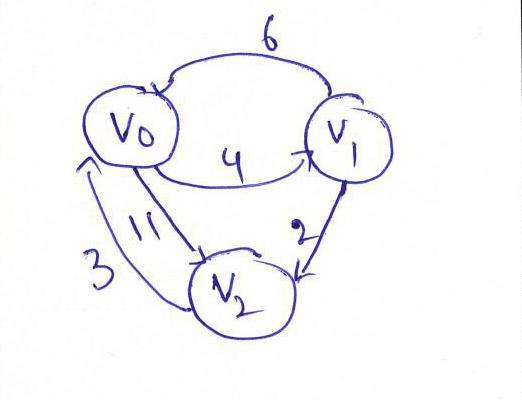 6
V0
V1
4
11
2
3
V2